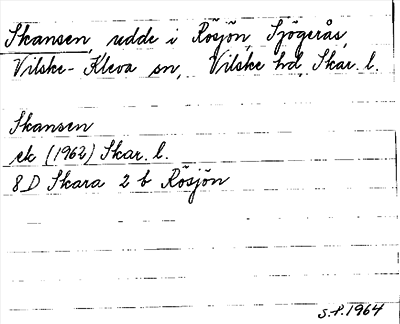 Skansen, udde i Rösjön, Sjögerås,
Vilske-Kleva sn, Vilske hd, Skar. l.
Skansen
ek (1962) Skar. l.
8D Skara 2 b Rösjön
S.F. 1964